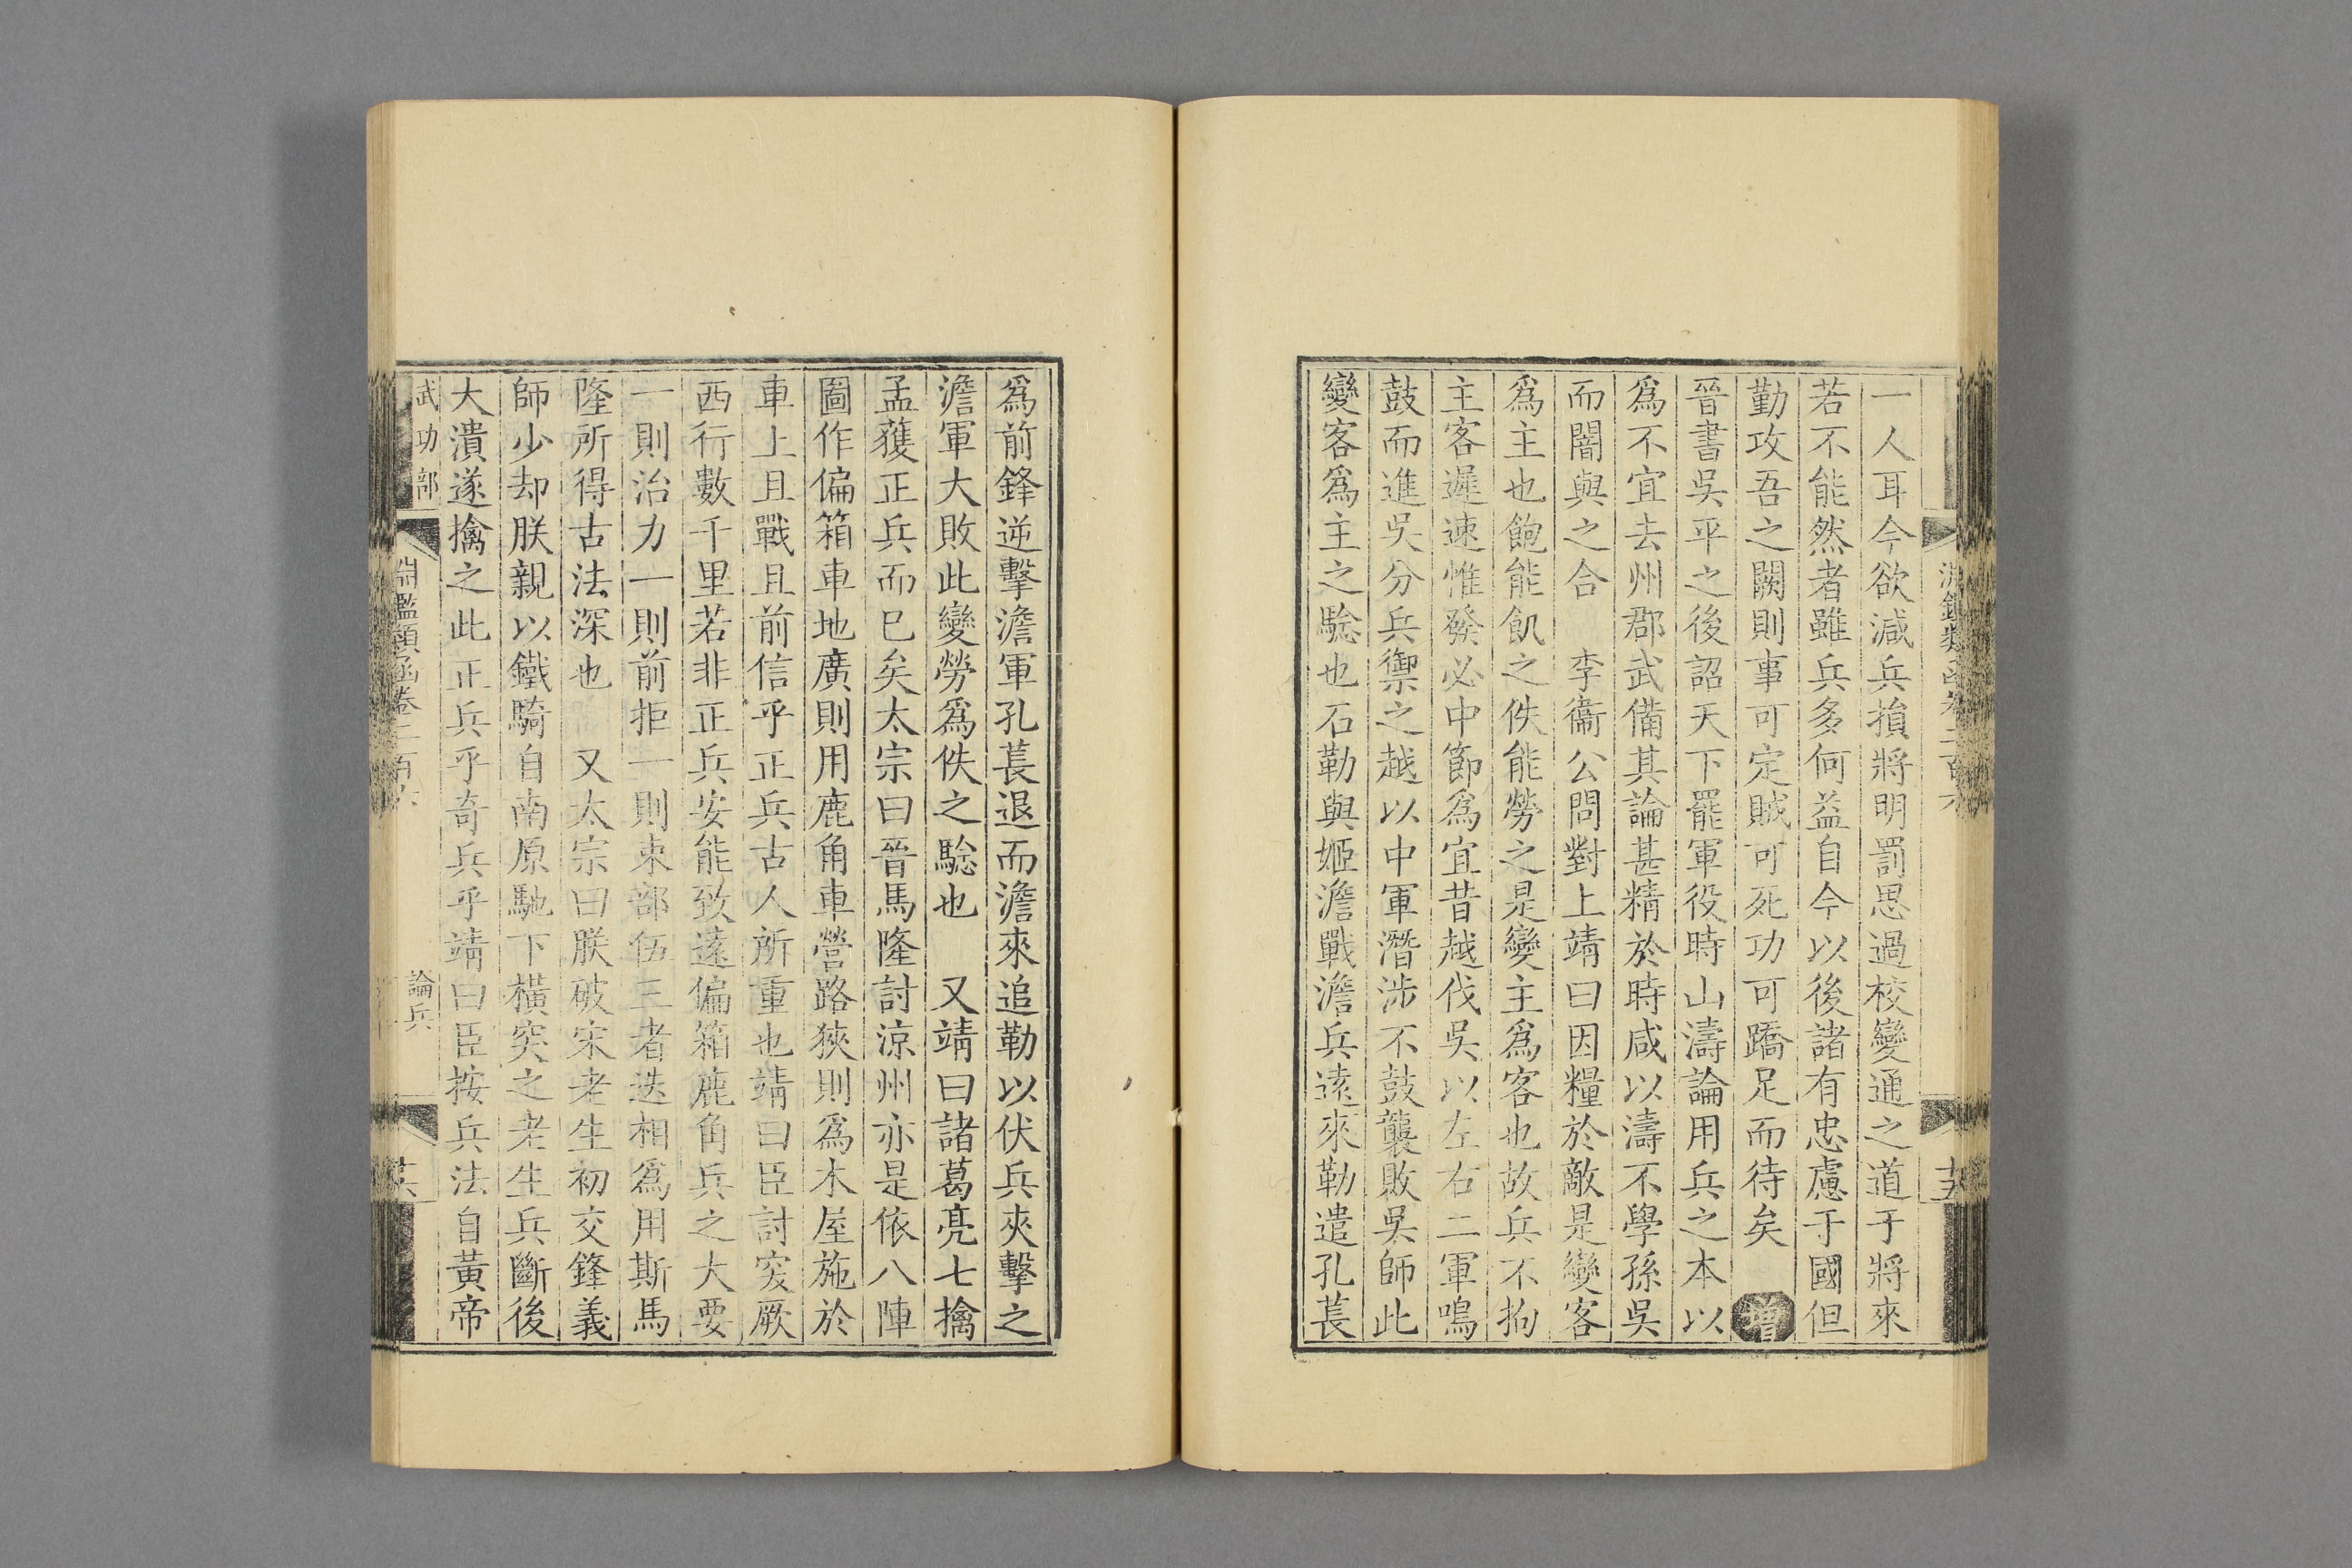 淵鑑類函卷二百六
十五
一人耳今欲減兵損將明罰思過校變通之道于將來
若不能然者雖兵多何益自今以後諸有忠慮于國但
勤攻吾之闕則事可定賊可死功可蹻足而待矣 增
晉書吳平之後詔天下罷軍役時山濤論用兵之本以
爲不宜去州郡武備其論甚精於時咸以濤不學孫吳
而闇與之合 李衞公問對上靖曰因糧於敵是變客
爲主也飽能飢之佚能勞之是變主爲客也故兵不拘
主客遲速惟發必中節爲宜昔越伐吳以左右二軍鳴
鼓而進吳分兵禦之越以中軍潛涉不鼓襲敗吳師此
變客爲主之驗也石勒與姬澹戰澹兵遠來勒遣孔萇
爲前鋒逆擊澹軍孔萇退而澹來追勒以伏兵夾擊之
澹軍大敗此變勞爲佚之驗也 又靖曰諸葛亮七擒
孟獲正兵而已矣太宗曰晉馬隆討涼州亦是依八陣
圖作偏箱車地廣則用鹿角車營路狹則爲木屋施於
車上且戰且前信乎正兵古人所重也靖曰臣討突厥
西行數千里若非正兵安能致遠偏箱鹿角兵之大要
一則治力一則前拒一則束部伍三者迭相爲用斯馬
隆所得古法深也 又太宗曰朕破宋老生初交鋒義
師少却朕親以鐵騎自南原馳下橫突之老生兵斷後
大潰遂擒之此正兵乎奇兵乎靖曰臣按兵法自黃帝
武功部
淵鑑類函卷二百六
論兵